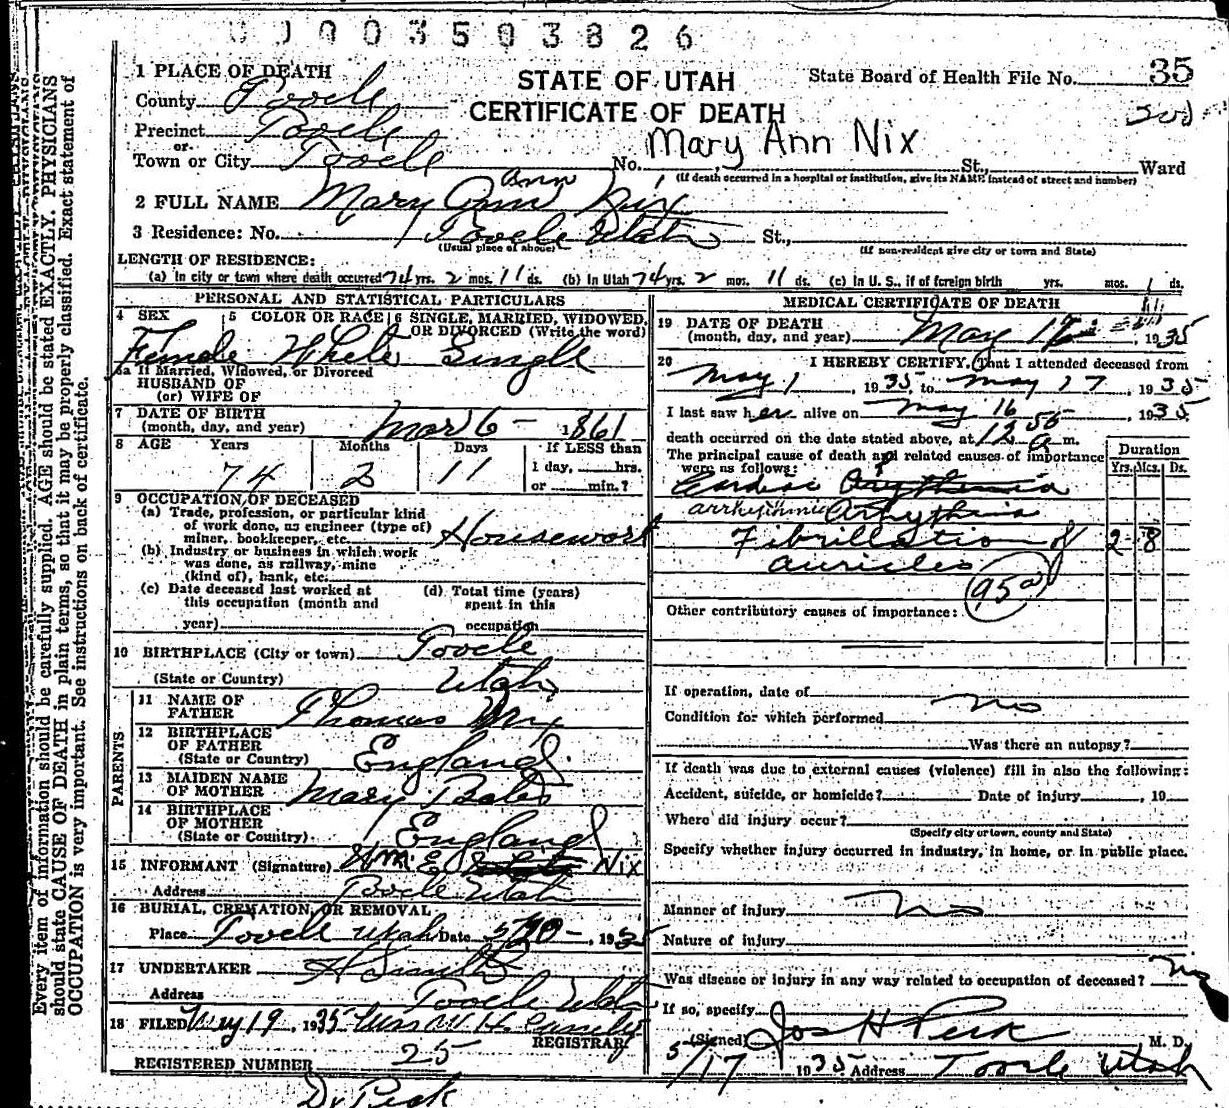 0003503826
1 PLACE OF DEATH
STATE OF UTAH
State Board of Health File No. 35
County Tooele
CERTIFICATE OF DEATH
Precinct Tooele
or
Mary Ann Nix
Town or City Tooele No. St., Ward
(If death occurred in a hospital or institution, give its NAME instead of street and number)
Ann
2 FULL NAME Mary Ann Nix
3 Residence: No. Tooele Utah St.,
(Usual place of abode) (If non-resident give city or town and State)
LENGTH OF RESIDENCE:
(a) In city or town where death occurred 74 yrs. 2 mos. 11 ds. (b) In Utah 74 yrs. 2 mos. 11 ds. (c) In U. S., if of foreign birth yrs. mos. ds.
PERSONAL AND STATISTICAL PARTICULARS
4 SEX 5 COLOR OR RACE 6 SINGLE, MARRIED, WIDOWED, OR DIVORCED (Write the word)
Female White Single
5a If Married, Widowed, or Divorced
HUSBAND OF
(or) WIFE OF
7 DATE OF BIRTH
(month, day, and year) Mar 6 - 1861
8 AGE Years Months Days If LESS than
74 2 11 1 day, hrs.
or min.?
9 OCCUPATION OF DECEASED
(a) Trade, profession, or particular kind
of work done, as engineer (type of)
miner, bookkeeper, etc. Housework
(b) Industry or business in which work
was done, as railway, mine
(kind of), bank, etc.
(c) Date deceased last worked at
this occupation (month and
year)
(d) Total time (years)
spent in this
occupation
10 BIRTHPLACE (City or town) Tooele
(State or Country) Utah
PARENTS
11 NAME OF
FATHER Thomas Nix
12 BIRTHPLACE
OF FATHER
(State or Country) England
13 MAIDEN NAME
OF MOTHER Mary Bates
14 BIRTHPLACE
OF MOTHER
(State or Country) England
15 INFORMANT (Signature) Wm. E. Nix
Address Tooele Utah
16 BURIAL, CREMATION, OR REMOVAL
Place Tooele Utah Date 5/20 - 1935
17 UNDERTAKER
Address Tooele Utah
18 FILED May 19, 1935
REGISTRAR
REGISTERED NUMBER 25
Dr Peck
MEDICAL CERTIFICATE OF DEATH
19 DATE OF DEATH
(month, day, and year) May 17 1935
20 I HEREBY CERTIFY, That I attended deceased from
May 1, 1935 to May 17 1935
I last saw her alive on May 16, 1935
death occurred on the date stated above, at 12 55 a m.
The principal cause of death and related causes of importance
were as follows:
Duration
Yrs. Mos. Ds.
Cardiac
arrhythmia Arhythmia
Fibrillation of 2 - 8
auricles
95a
Other contributory causes of importance:
If operation, date of no
Condition for which performed
Was there an autopsy?
If death was due to external causes (violence) fill in also the following:
Accident, suicide, or homicide? Date of injury , 19
Where did injury occur?
(Specify city or town, county and State)
Specify whether injury occurred in industry, in home, or in public place.
Manner of injury no
Nature of injury
Was disease or injury in any way related to occupation of deceased? no
If so, specify
(Signed) Jos H Peck M. D.
5/17 1935 Address Tooele Utah
Every item of information should be carefully supplied. AGE should be stated EXACTLY. PHYSICIANS
should state CAUSE OF DEATH in plain terms, so that it may be properly classified. Exact statement of
OCCUPATION is very important. See instructions on back of certificate.